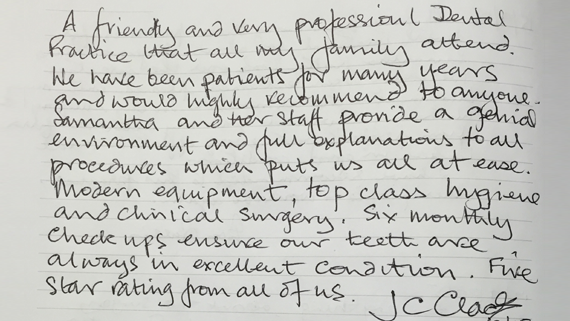 A friendly and very professional Dental
Practice that all my family attend.
We have been patients for many years
and would highly recommend to anyone.
Samantha and her staff provide a genial
environment and full explanations to all
procedures which puts us all at ease.
Modern equipment, top class hygiene
and clinical surgery. Six monthly
check ups ensure our teeth are
always in excellent condition. Five
Star rating from all of us.
J C